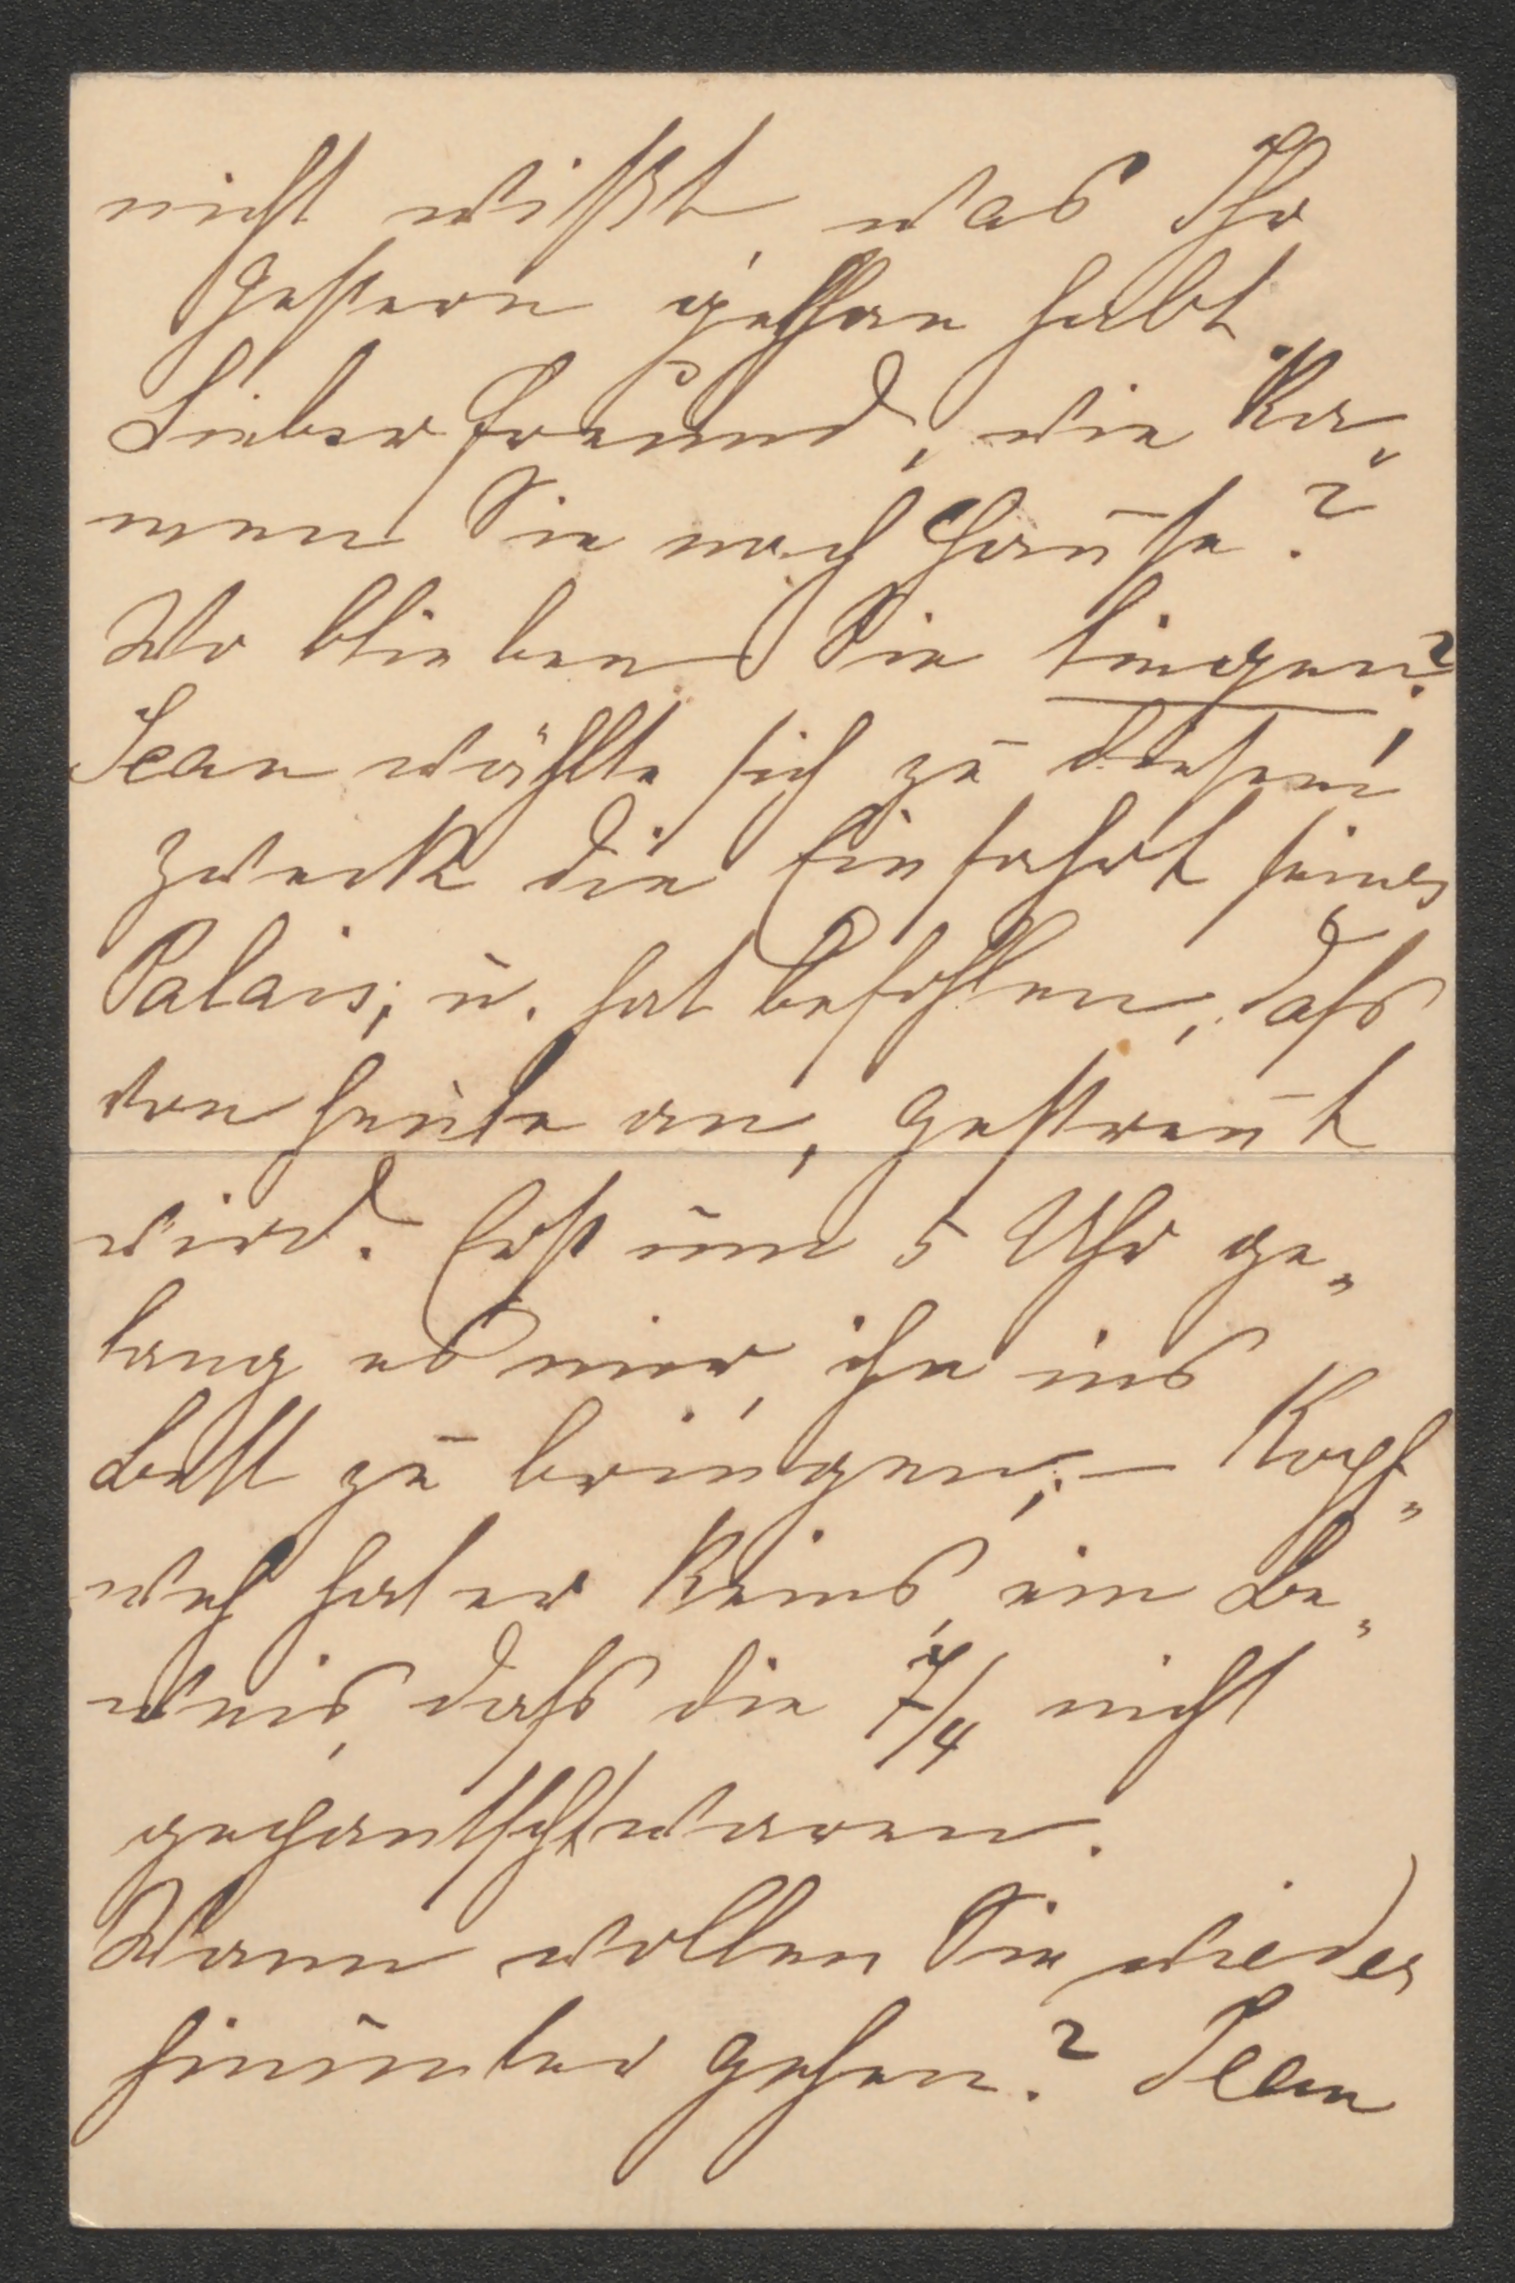 nicht wißt, was Ihr
gestern gethan habt.
Lieber Freund, wie ka„
men Sie nach Hause?
Wo blieben Sie liegen?
Jean wählte sich zu diesem
Zweck die Einfahrt seines
Palais; u. hat befohlen, daß
von heute an, gestreut
wird. Erst um 5 Uhr ge„
lang es mir, ihn ins
Bett zu bringen; – Kopf„
weh hat er keins, ein Be„
weis, daß die 7/4 nicht
gepantscht waren.
Wann wollen Sie wieder
hinunter gehen? Jean